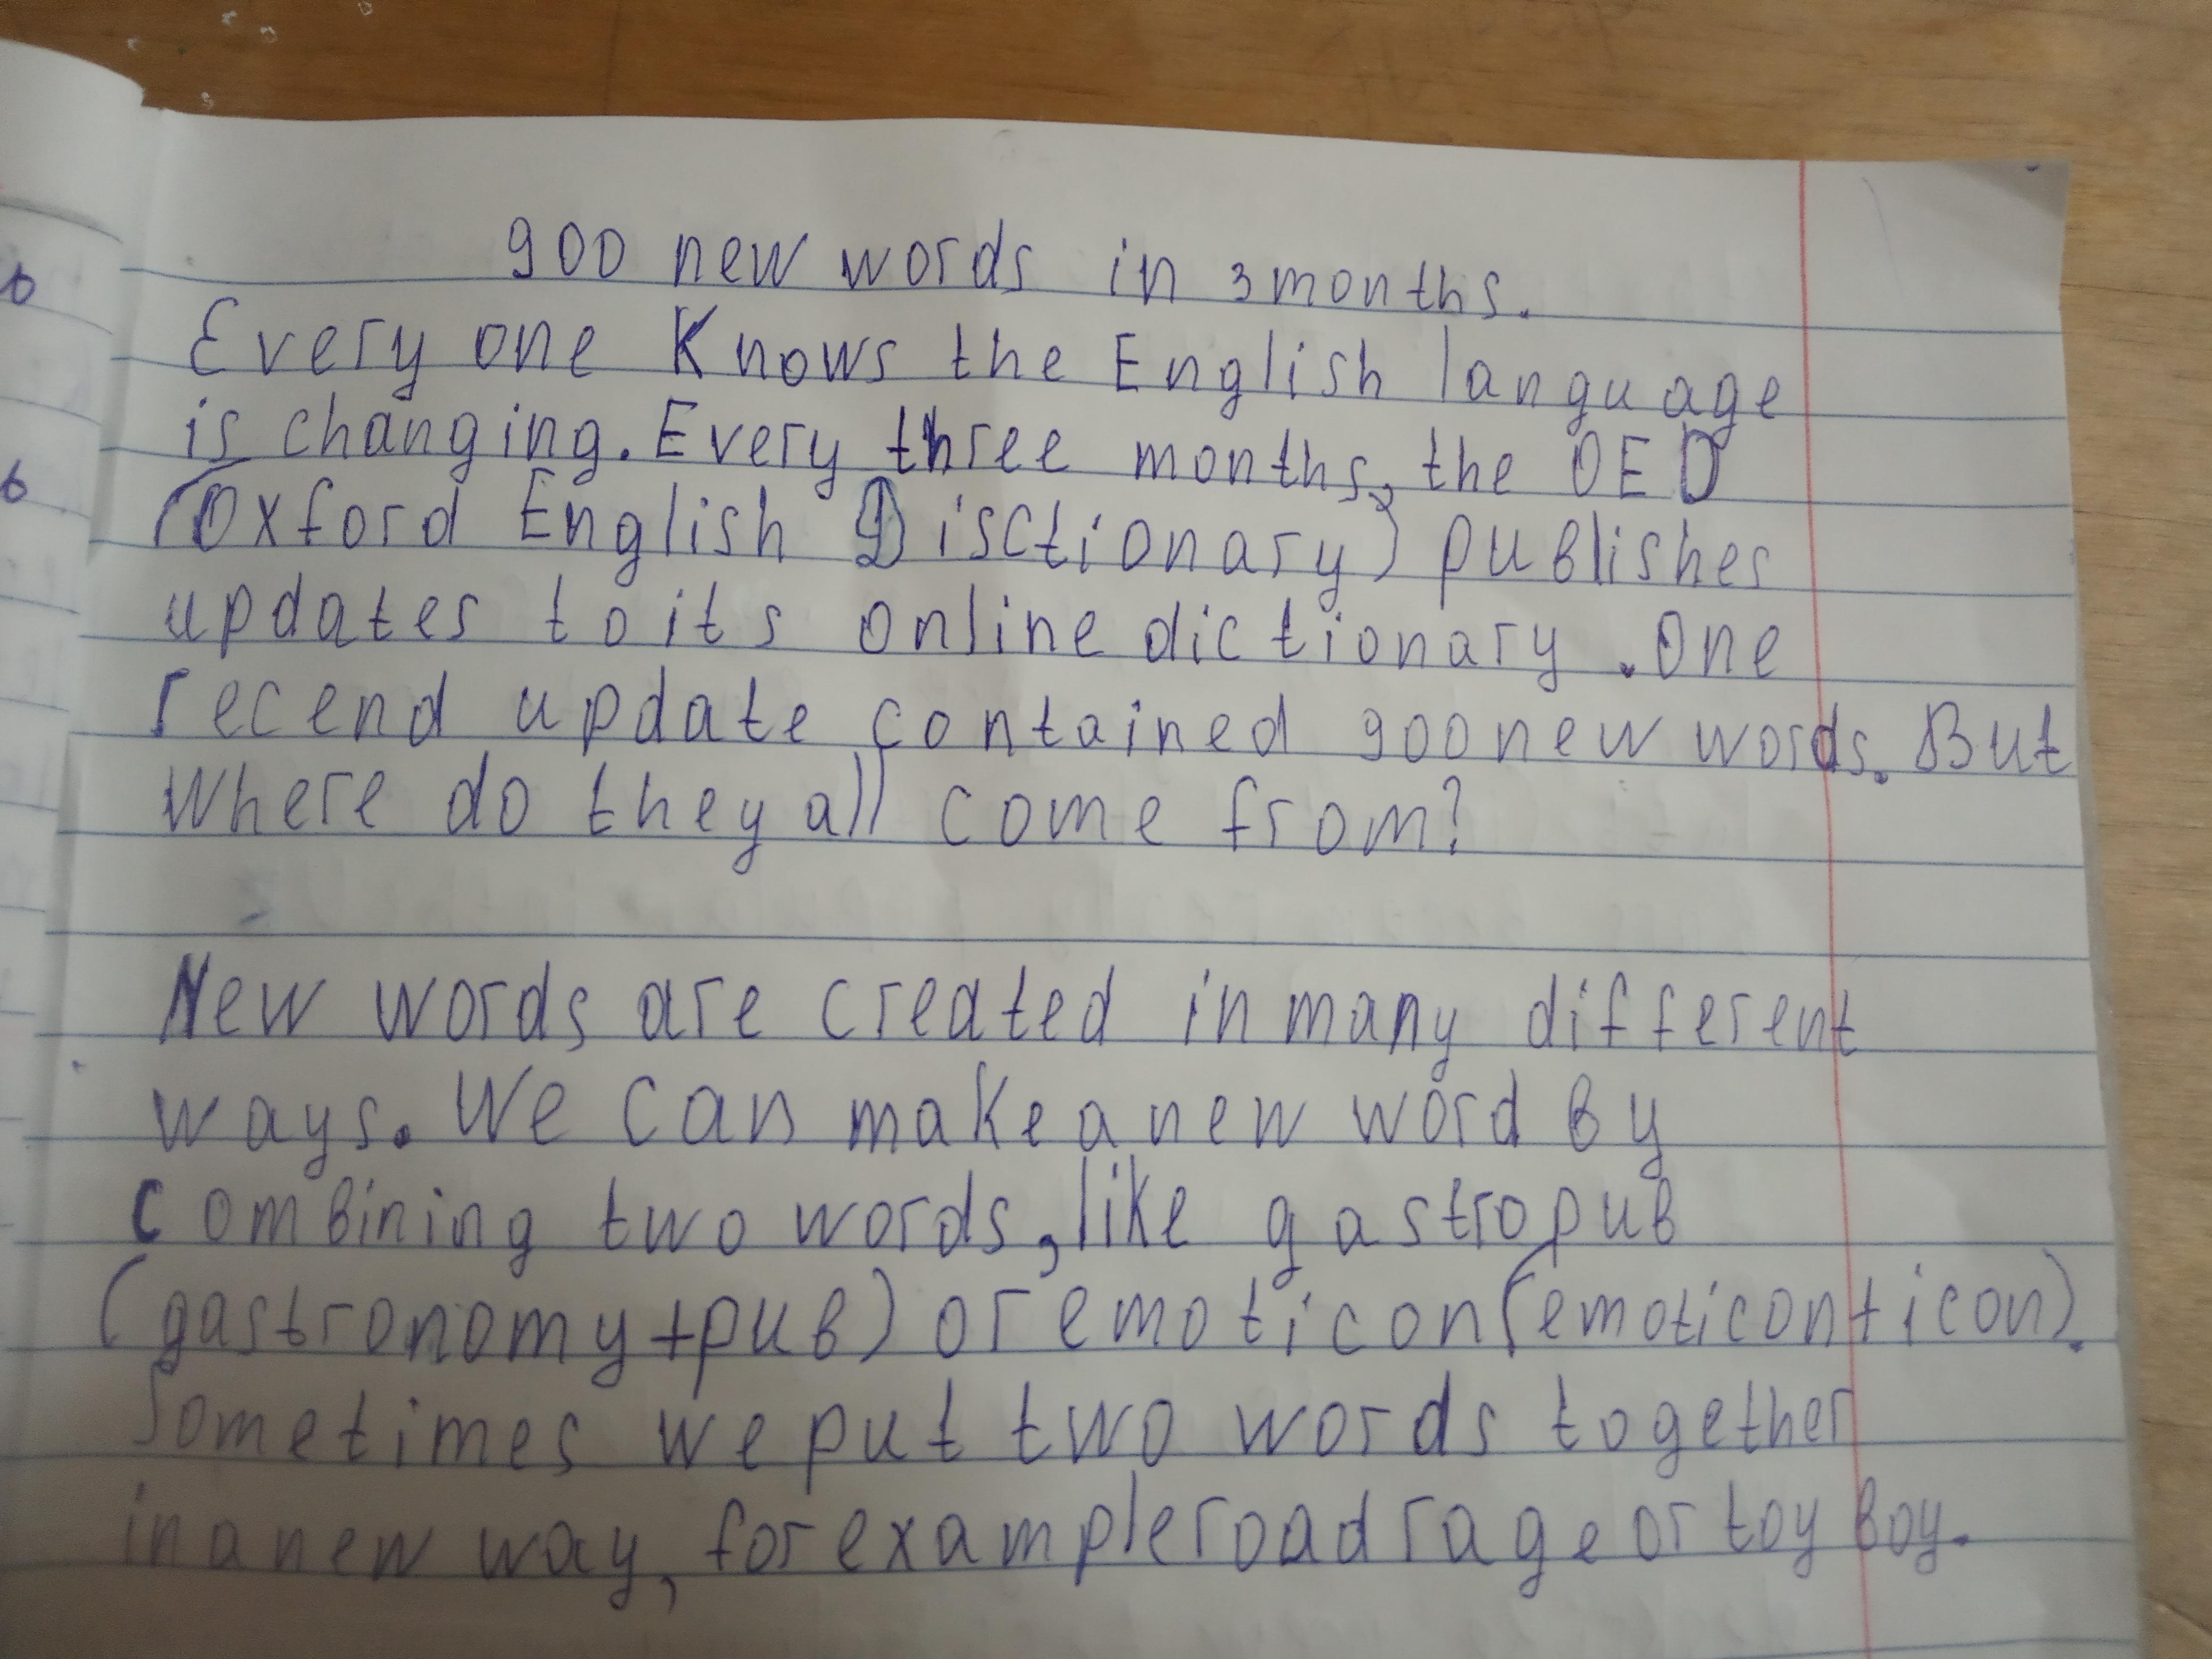 900 new words in 3 months.
Every one Knows the English language
is changing. Every three months, the OED
(Oxford English Disctionary) publishes
updates to its online dictionary. One
recend update contained 900 new words. But
where do they all come from?
New words are created in many different
ways. We can make a new word by
combining two words, like gastropub
(gastronomy+pub) or emoticon (emoticonticon).
Sometimes we put two words together
in a new way, for example road rage or toy boy.